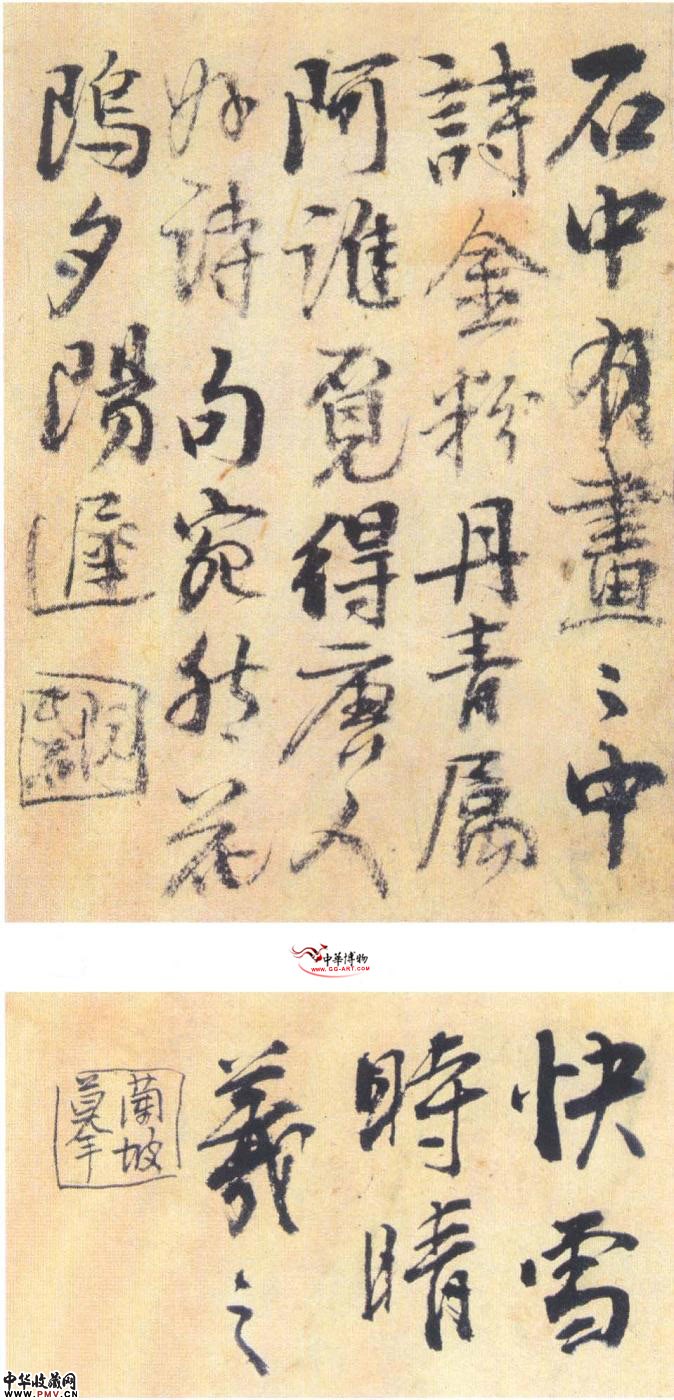 石中有畫〻中
詩金粉丹青属
阿誰覓得唐人
好诗句宛然花
隖夕陽遲
中華博物
WWW.GG-ART.COM
快雪
時晴
羲之
蘭坡
摹
中华收藏网
WWW.PMV.CN